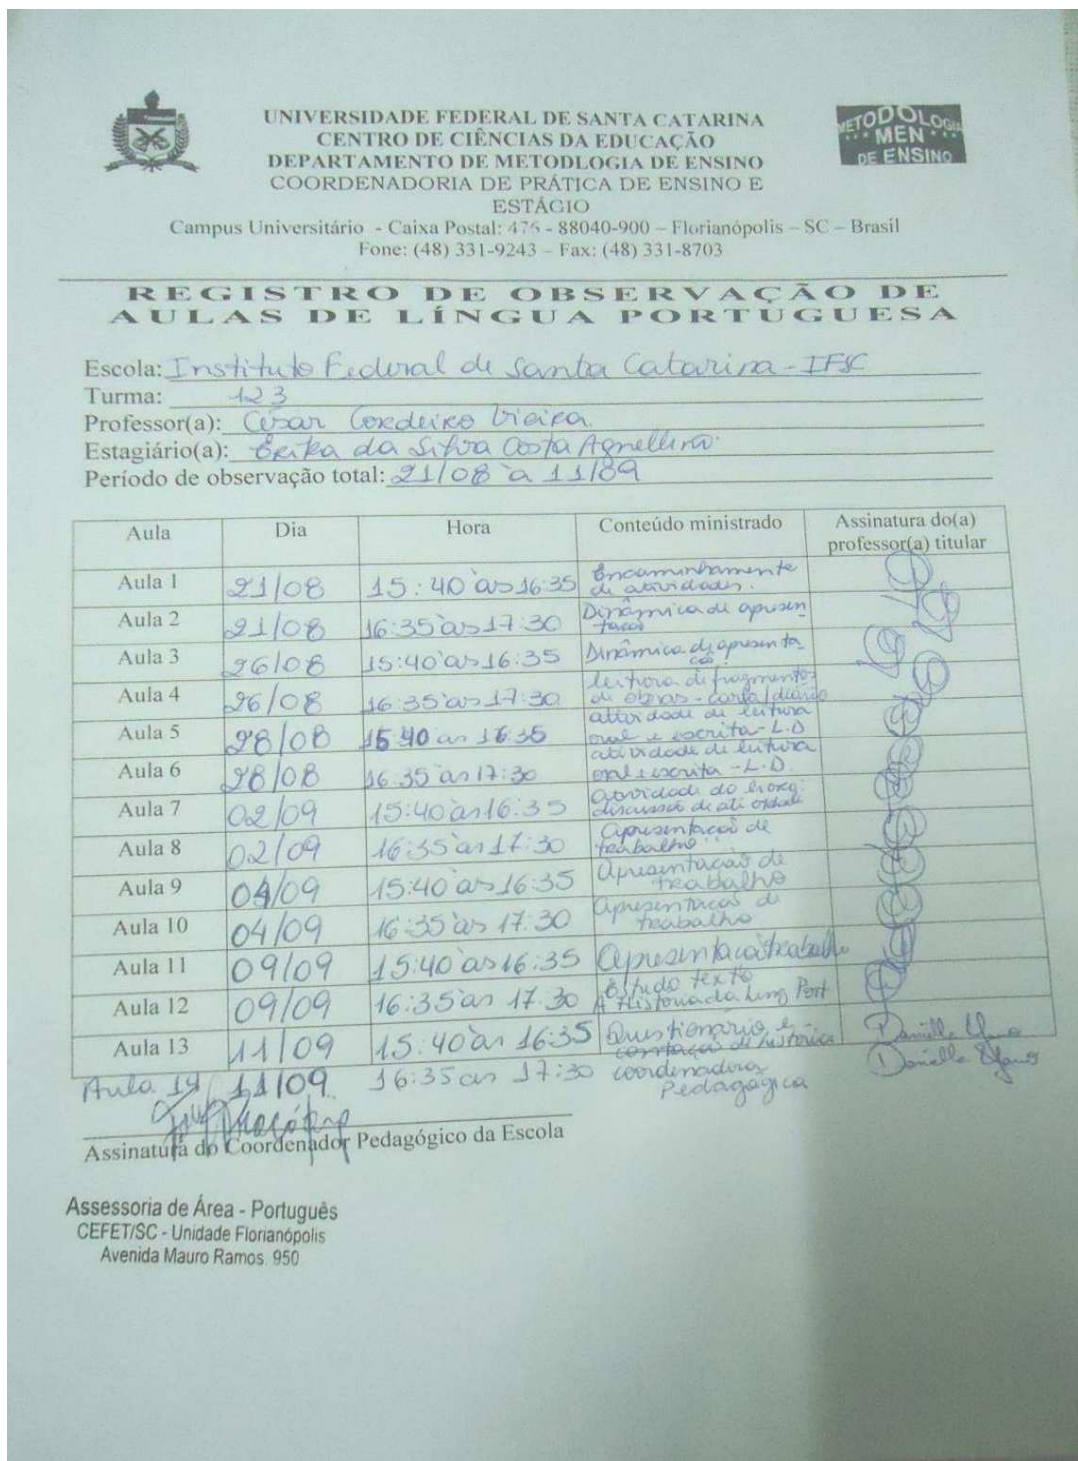 UNIVERSIDADE FEDERAL DE SANTA CATARINA
CENTRO DE CIÊNCIAS DA EDUCAÇÃO
DEPARTAMENTO DE METODLOGIA DE ENSINO
COORDENADORIA DE PRÁTICA DE ENSINO E
ESTÁGIO
METODOLOGIA
MEN
DE ENSINO
Campus Universitário - Caixa Postal: 476 - 88040-900 – Florianópolis – SC – Brasil
Fone: (48) 331-9243 – Fax: (48) 331-8703
REGISTRO DE OBSERVAÇÃO DE
AULAS DE LÍNGUA PORTUGUESA
Escola: Instituto Federal de Santa Catarina - IFSC
Turma: 123
Professor(a): César Cordeiro Vieira
Estagiário(a): Erika da Silva Costa Agnellino
Período de observação total: 21/08 à 11/09
Aula Dia Hora Conteúdo ministrado Assinatura do(a)
professor(a) titular
Aula 1 21/08 15:40 às 16:35 Encaminhamento
de atividades.
Aula 2 21/08 16:35 às 17:30 Dinâmica de apresen
tação
Aula 3 26/08 15:40 às 16:35 Dinâmica de apresenta
ção
Aula 4 26/08 16:35 às 17:30 leitura de fragmentos
de obras - carta/diário
Aula 5 28/08 15:40 às 16:35 atividade de leitura
oral e escrita - L.D
Aula 6 28/08 16:35 às 17:30 atividade de leitura
oral e escrita - L.D.
Aula 7 02/09 15:40 às 16:35 atividade do
discussão de atividade
Aula 8 02/09 16:35 às 17:30 apresentação de
trabalho
Aula 9 04/09 15:40 às 16:35 apresentação de
trabalho
Aula 10 04/09 16:35 às 17:30 apresentação de
trabalho
Aula 11 09/09 15:40 às 16:35 apresentação trabalho
Aula 12 09/09 16:35 às 17:30 Estudo texto
A História da Ling Port
Aula 13 11/09 15:40 às 16:35 Questionário, e
Aula 14 11/09 16:35 às 17:30 coordenadora
Pedagógica
Assinatura do Coordenador Pedagógico da Escola
Assessoria de Área - Português
CEFET/SC - Unidade Florianópolis
Avenida Mauro Ramos, 950